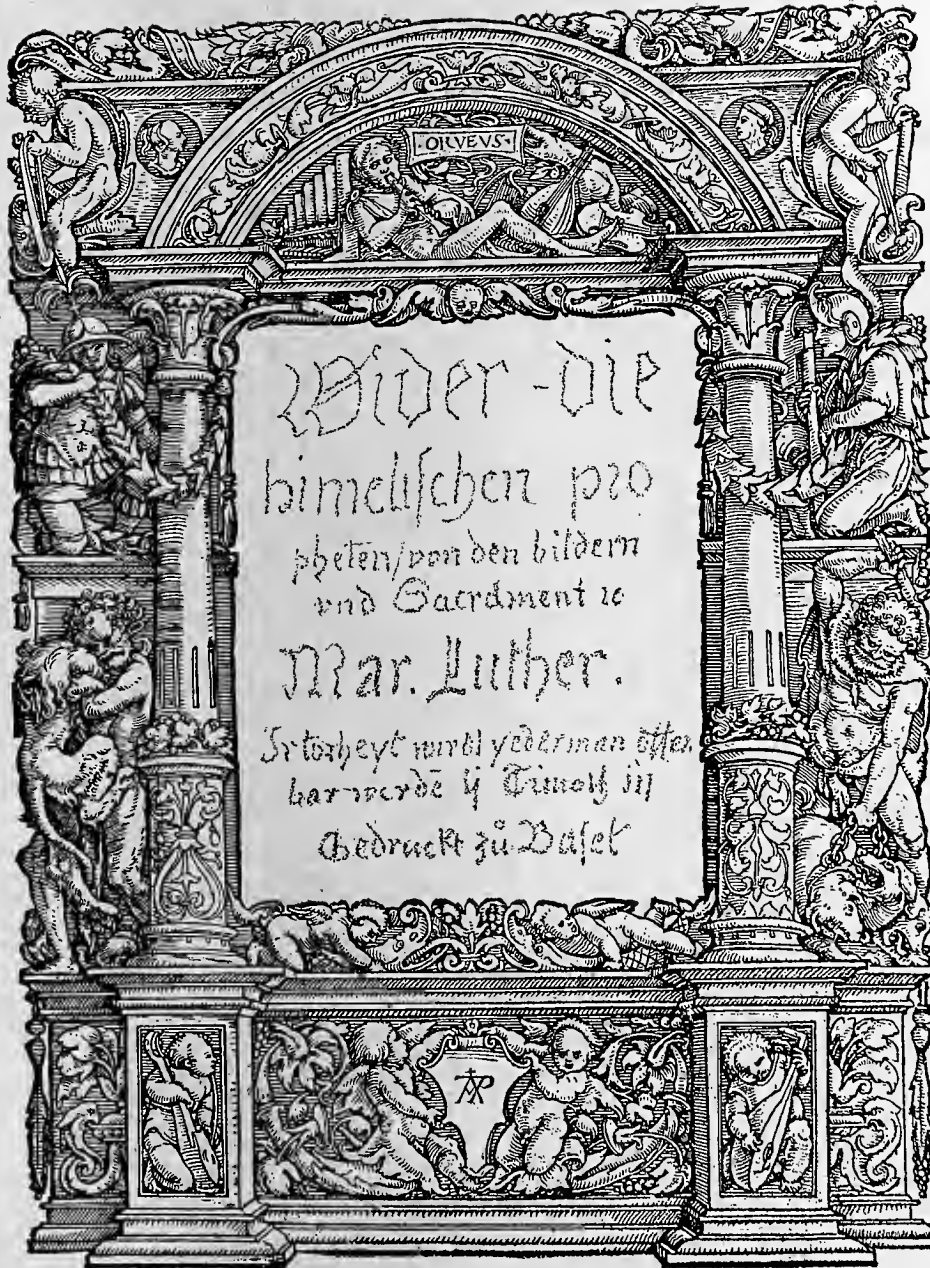 ORVEVS
Wider die
himelischen pro
pheten/von den bildern
vnd Sacrament ꝛc
Mar. Luther.
Ir torheyt wirdt yederman offen
bar werdē ij Timoth iij
Gedruckt zů Basel